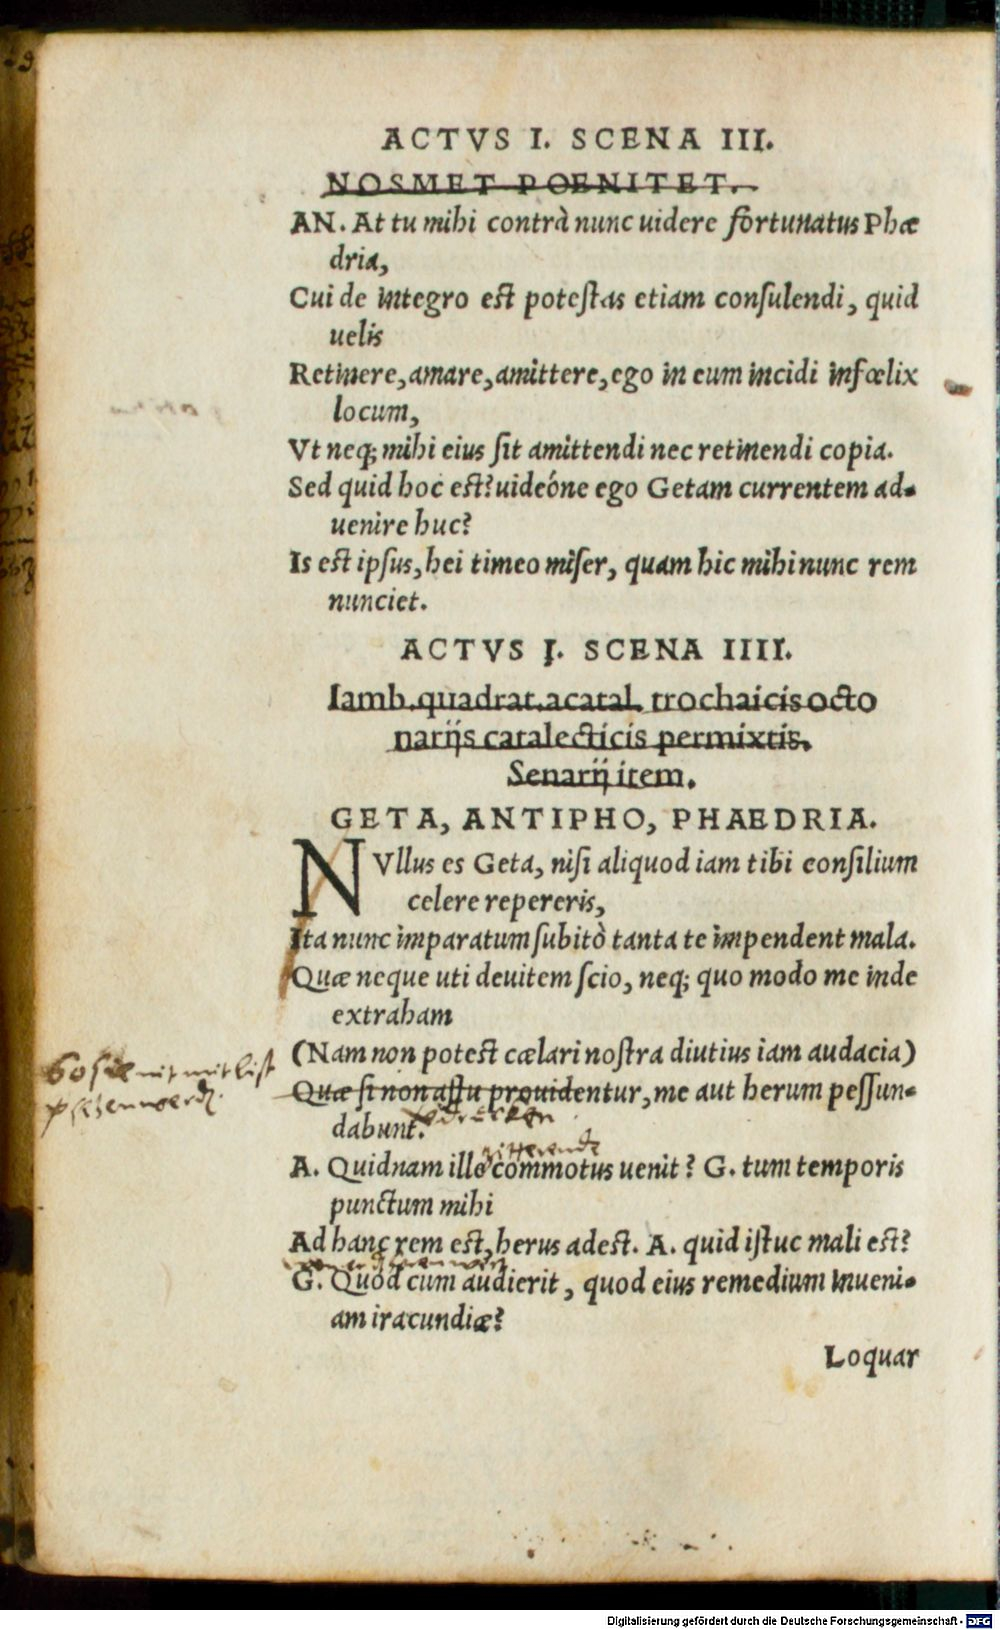 ACTVS I. SCENA III.
NOSMET POENITET.
AN. At tu mihi contrà nunc uidere fortunatus Phæ
dria,
Cui de integro est potestas etiam consulendi, quid
uelis
Retinere, amare, amittere, ego in eum incidi infœlix
locum,
Vt neq; mihi eius sit amittendi nec retinendi copia.
Sed quid hoc est? uideóne ego Getam currentem ad-
uenire huc?
Is est ipsus, hei timeo miser, quam hic mihi nunc rem
nunciet.
ACTVS I. SCENA IIII.
Iamb. quadrat. acatal. trochaicis octo
narijs catalecticis permixtis.
Senarij item.
GETA, ANTIPHO, PHAEDRIA.
NVllus es Geta, nisi aliquod iam tibi consilium
celere repereris,
Ita nunc imparatum subitò tanta te impendent mala.
Quæ neque uti deuitem scio, neq; quo modo me inde
extraham
(Nam non potest cælari nostra diutius iam audacia)
Quæ si non astu prouidentur, me aut herum pessun-
dabunt.
A. Quidnam ille commotus uenit? G. tum temporis
punctum mihi
Ad hanc rem est, herus adest. A. quid istuc mali est?
G. Quod cum audierit, quod eius remedium inueni-
am iracundiæ?
Loquar
Digitalisierung gefördert durch die Deutsche Forschungsgemeinschaft - DFG